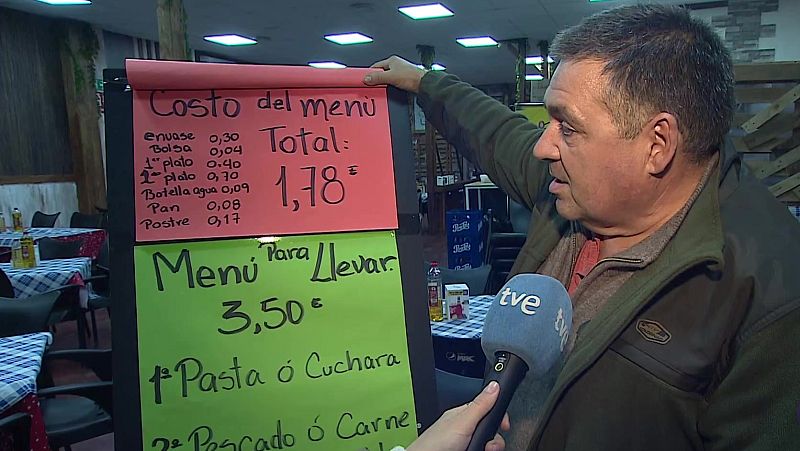 Costo del menú
envase 0,30
Bolsa 0,04
1er plato 0.40
2º plato 0,70
Botella agua 0,09
Pan 0,08
Postre 0,17
Total:
1,78€
Menú Para Llevar.
3,50€
1º Pasta ó Cuchara
2º Pescado ó Carne
tve
tve